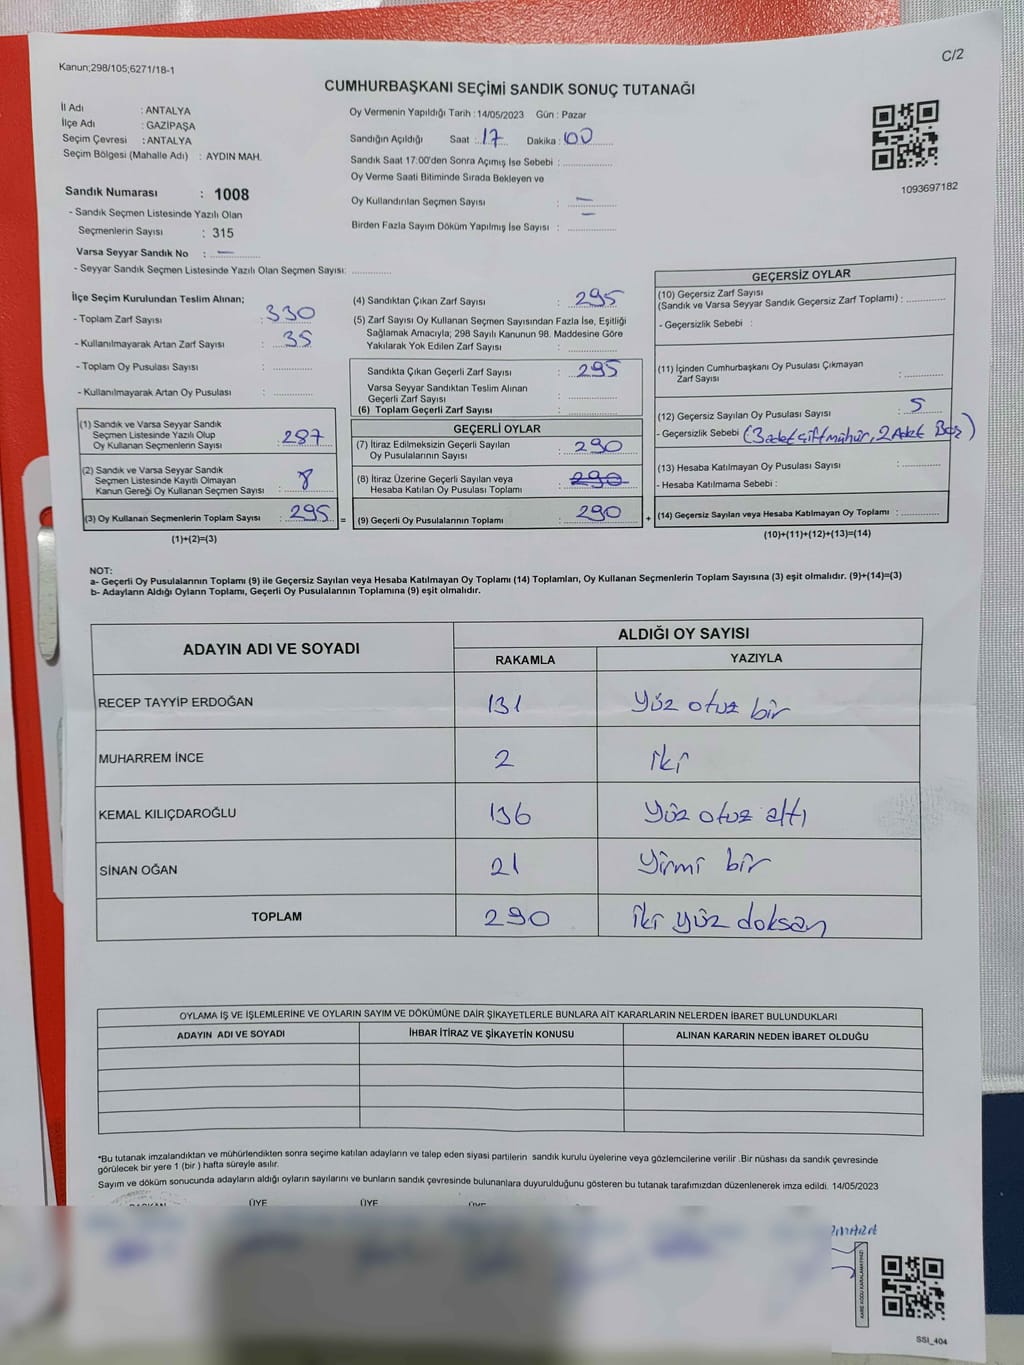 C/2
Kanun;298/105;6271/18-1
CUMHURBAŞKANI SEÇİMİ SANDIK SONUÇ TUTANAĞI
İl Adı : ANTALYA
İlçe Adı : GAZİPAŞA
Seçim Çevresi : ANTALYA
Seçim Bölgesi (Mahalle Adı) : AYDIN MAH.
Sandık Numarası : 1008
- Sandık Seçmen Listesinde Yazılı Olan
Seçmenlerin Sayısı : 315
Varsa Seyyar Sandık No : –
- Seyyar Sandık Seçmen Listesinde Yazılı Olan Seçmen Sayısı: ............
Oy Vermenin Yapıldığı Tarih : 14/05/2023 Gün : Pazar
Sandığın Açıldığı Saat : 17 Dakika : 00
Sandık Saat 17:00'den Sonra Açımış İse Sebebi : ............
Oy Verme Saati Bitiminde Sırada Bekleyen ve
Oy Kullandırılan Seçmen Sayısı : –
Birden Fazla Sayım Döküm Yapılmış İse Sayısı : –
1093697182
İlçe Seçim Kurulundan Teslim Alınan;
- Toplam Zarf Sayısı : 330
- Kullanılmayarak Artan Zarf Sayısı : 35
- Toplam Oy Pusulası Sayısı : ............
- Kullanılmayarak Artan Oy Pusulası : ............
(1) Sandık ve Varsa Seyyar Sandık
Seçmen Listesinde Yazılı Olup
Oy Kullanan Seçmenlerin Sayısı : 287
(2) Sandık ve Varsa Seyyar Sandık
Seçmen Listesinde Kayıtlı Olmayan
Kanun Gereği Oy Kullanan Seçmen Sayısı : 8
(3) Oy Kullanan Seçmenlerin Toplam Sayısı : 295 =
(1)+(2)=(3)
(4) Sandıktan Çıkan Zarf Sayısı : 295
(5) Zarf Sayısı Oy Kullanan Seçmen Sayısından Fazla İse, Eşitliği
Sağlamak Amacıyla; 298 Sayılı Kanunun 98. Maddesine Göre
Yakılarak Yok Edilen Zarf Sayısı : ............
Sandıkta Çıkan Geçerli Zarf Sayısı : 295
Varsa Seyyar Sandıktan Teslim Alınan
Geçerli Zarf Sayısı : ............
(6) Toplam Geçerli Zarf Sayısı : ............
GEÇERLİ OYLAR
(7) İtiraz Edilmeksizin Geçerli Sayılan
Oy Pusulalarının Sayısı : 290
(8) İtiraz Üzerine Geçerli Sayılan veya
Hesaba Katılan Oy Pusulası Toplamı : 290
(9) Geçerli Oy Pusulalarının Toplamı : 290 +
GEÇERSİZ OYLAR
(10) Geçersiz Zarf Sayısı
(Sandık ve Varsa Seyyar Sandık Geçersiz Zarf Toplamı) : ............
- Geçersizlik Sebebi :
(11) İçinden Cumhurbaşkanı Oy Pusulası Çıkmayan
Zarf Sayısı : ............
(12) Geçersiz Sayılan Oy Pusulası Sayısı : 5
- Geçersizlik Sebebi (3 adet çift mühür, 2 Adet Boş)
(13) Hesaba Katılmayan Oy Pusulası Sayısı : ............
- Hesaba Katılmama Sebebi :
(14) Geçersiz Sayılan veya Hesaba Katılmayan Oy Toplamı : ............
(10)+(11)+(12)+(13)=(14)
NOT:
a- Geçerli Oy Pusulalarının Toplamı (9) ile Geçersiz Sayılan veya Hesaba Katılmayan Oy Toplamı (14) Toplamları, Oy Kullanan Seçmenlerin Toplam Sayısına (3) eşit olmalıdır. (9)+(14)=(3)
b- Adayların Aldığı Oyların Toplamı, Geçerli Oy Pusulalarının Toplamına (9) eşit olmalıdır.
ADAYIN ADI VE SOYADI ALDIĞI OY SAYISI
RAKAMLA YAZIYLA
RECEP TAYYİP ERDOĞAN 131 Yüz otuz bir
MUHARREM İNCE 2 iki
KEMAL KILIÇDAROĞLU 136 Yüz otuz altı
SİNAN OĞAN 21 Yirmi bir
TOPLAM 290 iki yüz doksan
OYLAMA İŞ VE İŞLEMLERİNE VE OYLARIN SAYIM VE DÖKÜMÜNE DAİR ŞİKAYETLERLE BUNLARA AİT KARARLARIN NELERDEN İBARET BULUNDUKLARI
ADAYIN ADI VE SOYADI İHBAR İTİRAZ VE ŞİKAYETİN KONUSU ALINAN KARARIN NEDEN İBARET OLDUĞU
*Bu tutanak imzalandıktan ve mühürlendikten sonra seçime katılan adayların ve talep eden siyasi partilerin sandık kurulu üyelerine veya gözlemcilerine verilir .Bir nüshası da sandık çevresinde
görülecek bir yere 1 (bir ) hafta süreyle asılır.
Sayım ve döküm sonucunda adayların aldığı oyların sayılarını ve bunların sandık çevresinde bulunanlara duyurulduğunu gösteren bu tutanak tarafımızdan düzenlenerek imza edildi. 14/05/2023
BAŞKAN ÜYE ÜYE ÜYE
KARE KODU KARALAMAYINIZ!
SSI_404